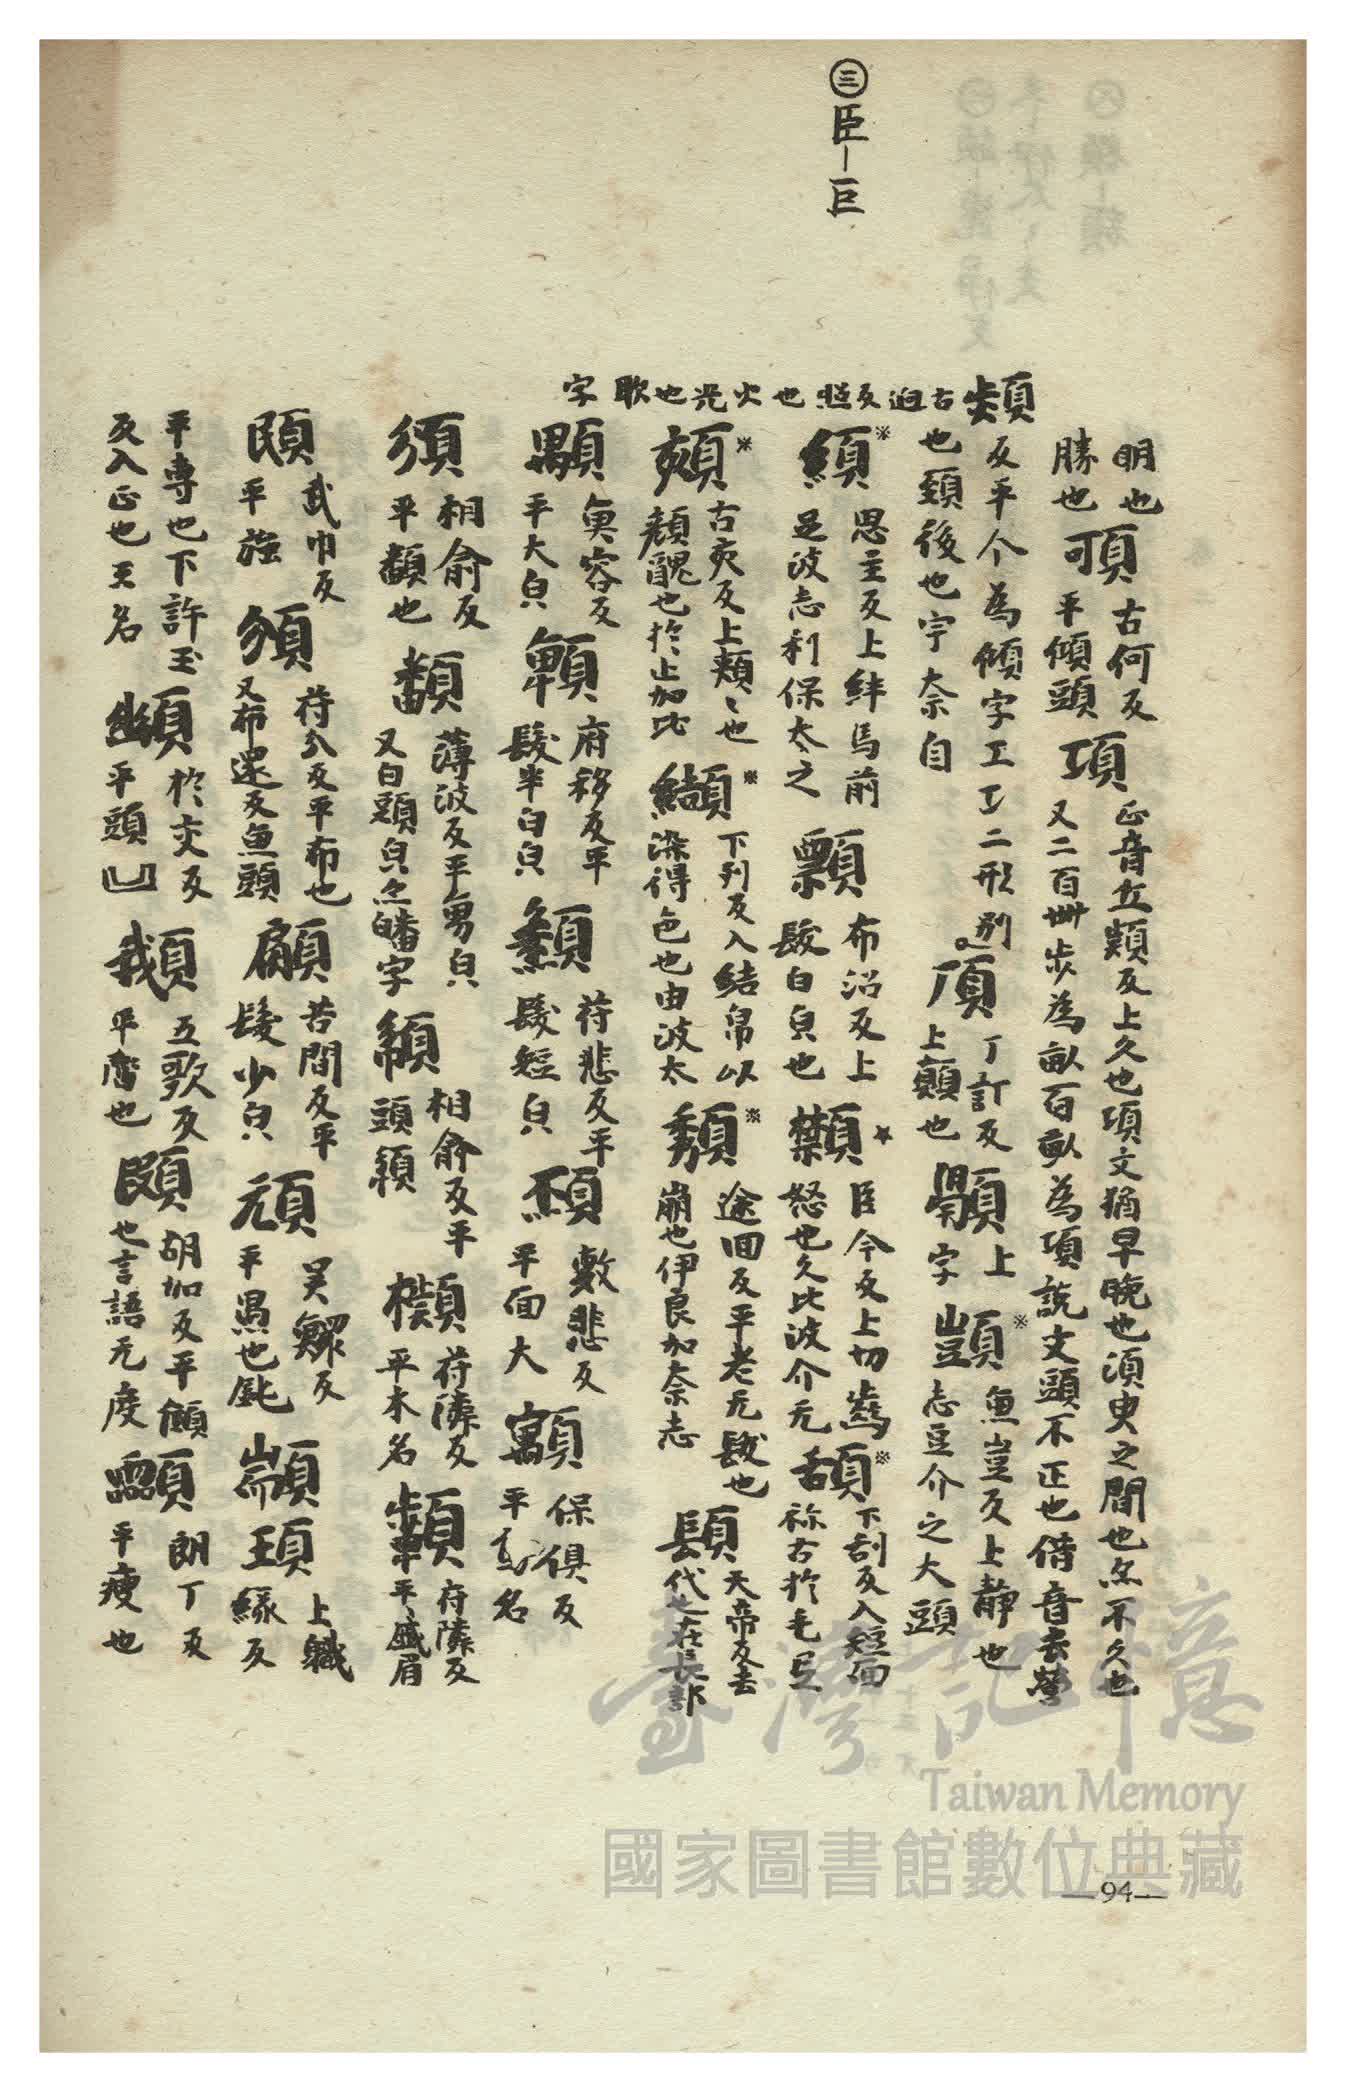 ㊂臣－巨
䫌古迥反照也火光也耿字
明也
勝也
䪽古何反
平傾頭
項
正音丘類反上久也項文猶早晚也須臾之間也亦不久也
又二百卌步為畝百畝為項說文頭不正也借音去營
反平今為傾字工工二形別
也頸後也宇奈自
頂丁訂反
上顛也
顎上
字
顗※魚豈反上靜也
志豆介之大頭
䋶※思主反上絆馬前
足波志利保太之
顠布沼反上
髮白皃也
顉臣今反上切齒
怒也久比波介无
䫄※下刮反入短面
祢古於毛尼
古亥反上頰〻也
頦醜也於止加比
纈※下列反入結帛以
染得色也由波太
頹※途回反平老无髮也
崩也伊良加奈志
天帝反去
代也在長部
顒魚容反
平大皃
顐府移反平
髮半白皃
符悲反平
髮短皃
頾敷悲反
平面大
保俱反
平名
須相俞反
平顏也
䪤薄波反平勇白
又白頭皃亦皤字
相俞反平
頭
符隣反
平木名
顰府隣反
平〻蹙眉
武巾反
平強
頒符分反平布也
又布還反魚頭
顅苦間反平
髮少皃
頑吳鰥反
平愚也鈍
顓頊上職
緣反
平專也下許玉
反入正也王名
於交反
平頭凹
五歌反
平齊也
胡加反平頤
也言語无度
朗丁反
平瘦也
臺灣記憶
Taiwan Memory
國家圖書館數位典藏
—94—